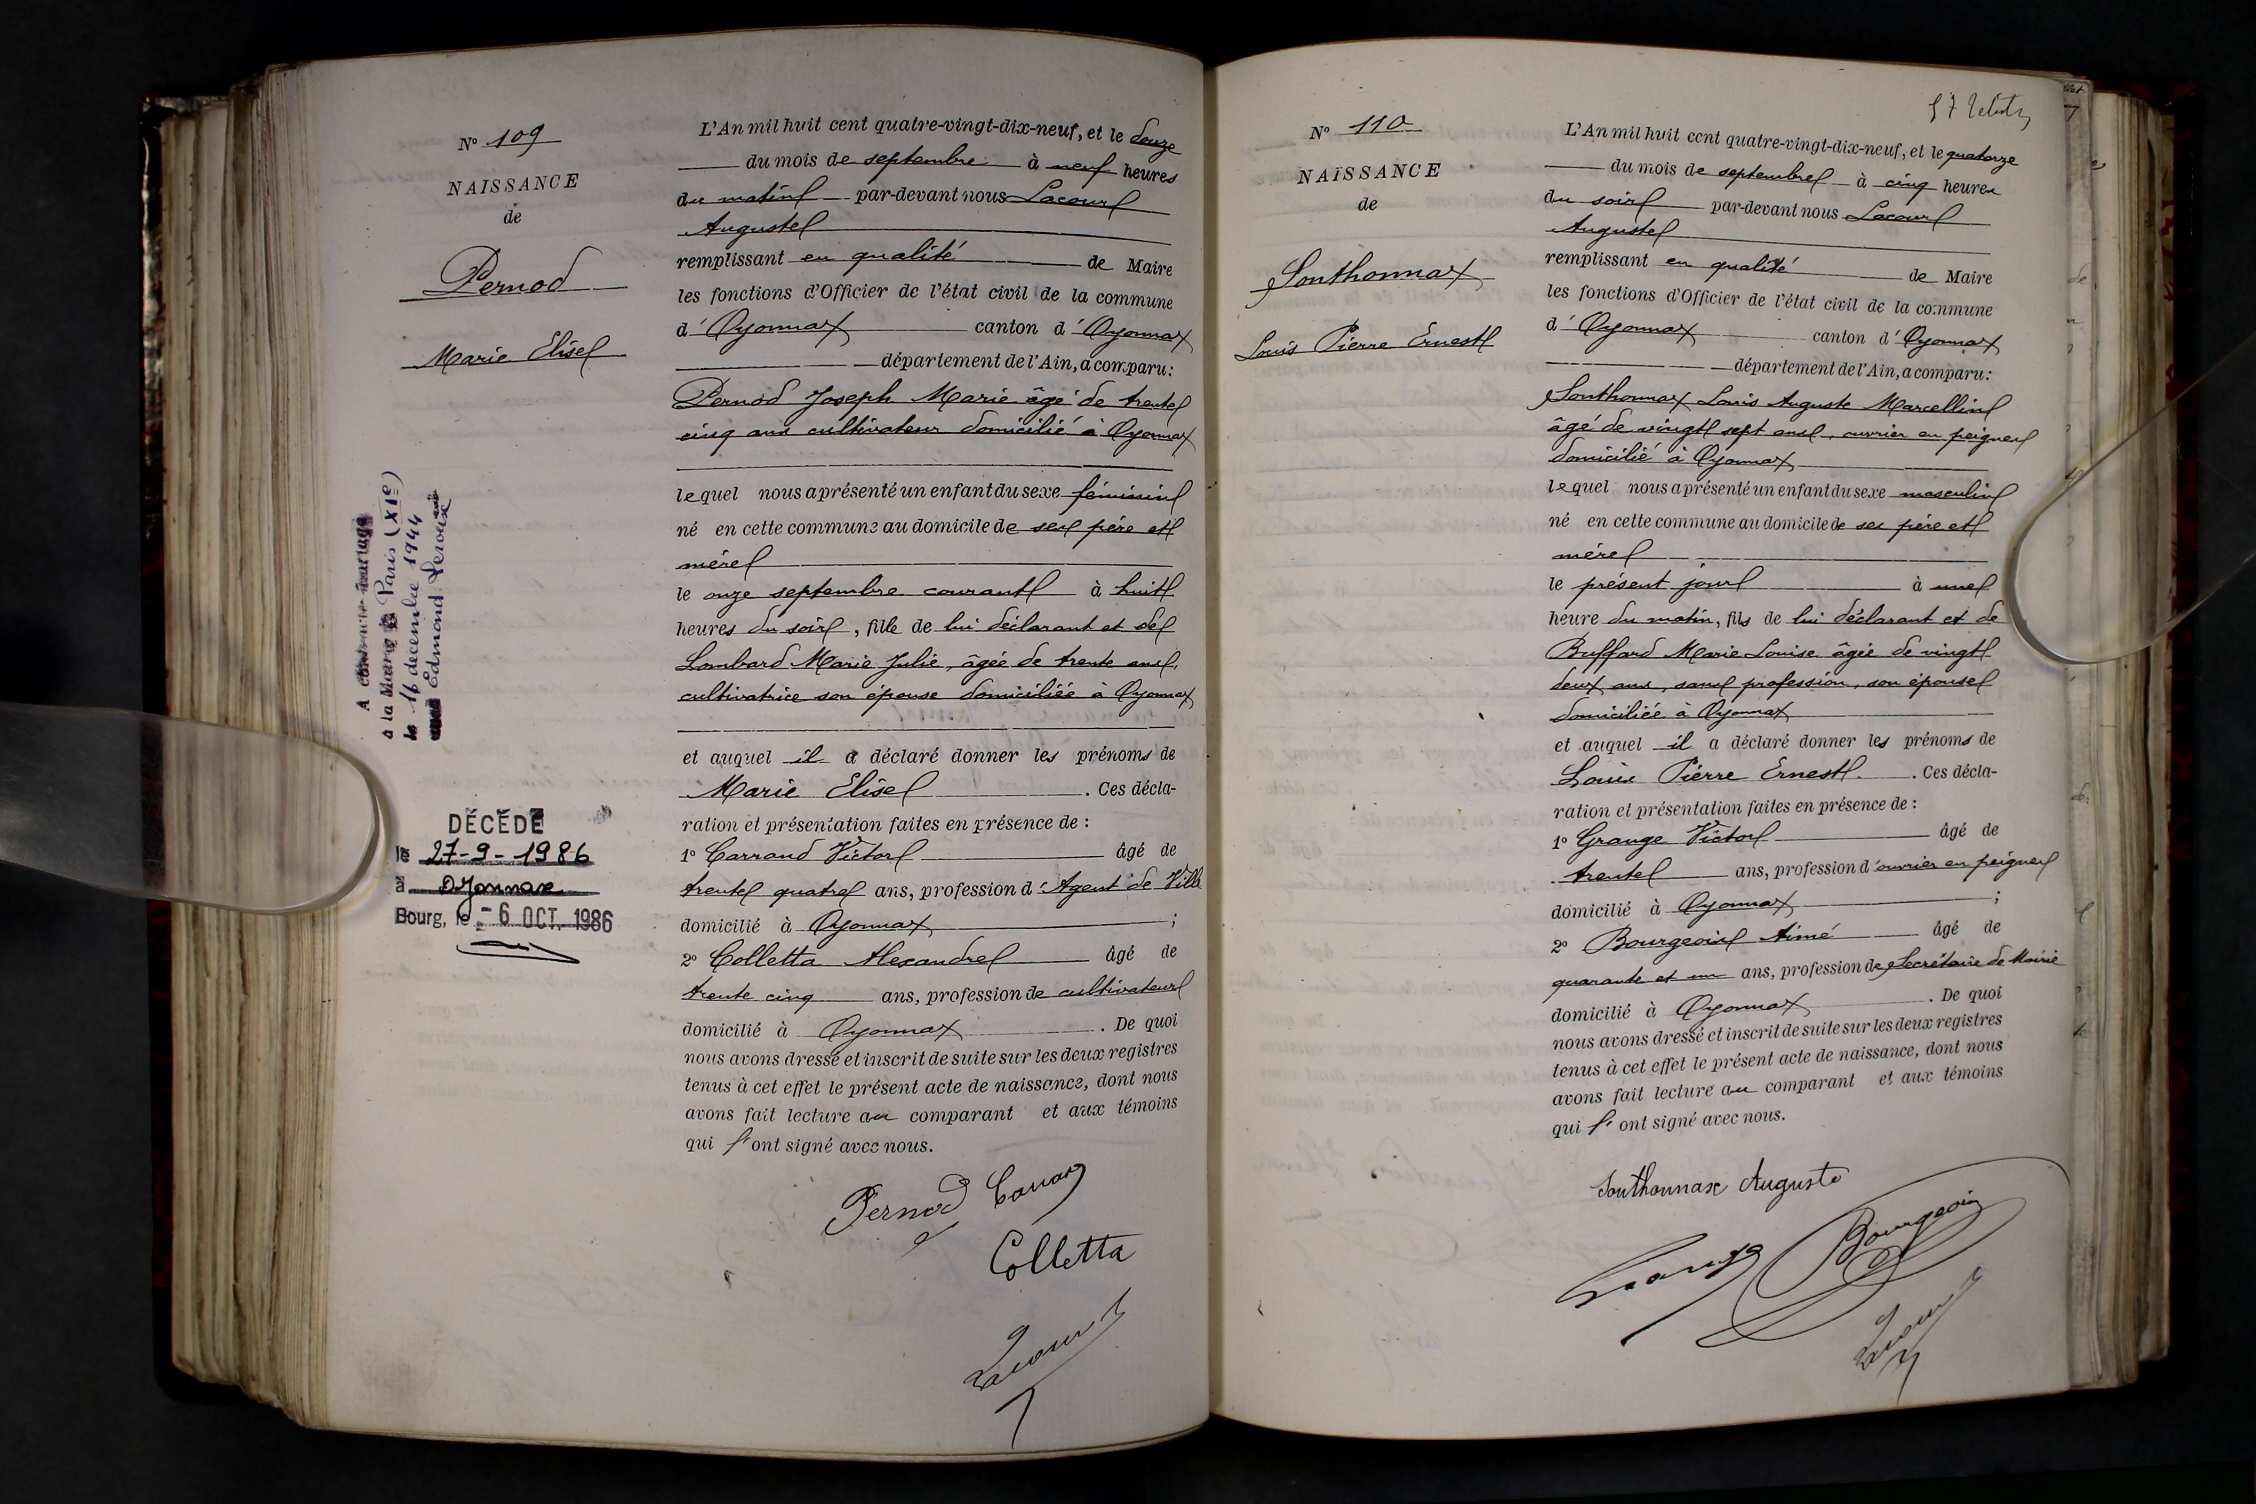 N° 109
NAISSANCE
de
Pernod
Marie Elise
A contracté mariage
à la Mairie de Paris (XIe)
le 16 decembre 1944
avec Edmond
DÉCÉDÉ
le 27-9-1986
à Oyonnax
Bourg, le -6 OCT. 1986
L'An mil huit cent quatre-vingt-dix-neuf, et le douze
du mois de septembre à neuf heures
du matin par-devant nous Lacour
Auguste
remplissant en qualité de Maire
les fonctions d'Officier de l'état civil de la commune
d'Oyonnax canton d'Oyonnax
département de l'Ain, a comparu :
Pernod Joseph Marie âgé de trente
cinq ans cultivateur domicilié à Oyonnax
lequel nous a présenté un enfant du sexe féminin
né en cette commune au domicile de ses père et
mère
le onze septembre courant à huit
heures du soir, fille de lui déclarant et de
Lombard Marie Julie, âgée de trente ans,
cultivatrice son épouse domiciliée à Oyonnax
et auquel il a déclaré donner les prénoms de
Marie Elise . Ces décla-
ration et présentation faites en présence de :
1° Carrand Victor âgé de
trente quatre ans, profession d'Agent de Ville
domicilié à Oyonnax ;
2° Colletta Alexandre âgé de
trente cinq ans, profession de cultivateur
domicilié à Oyonnax . De quoi
nous avons dressé et inscrit de suite sur les deux registres
tenus à cet effet le présent acte de naissance, dont nous
avons fait lecture au comparant et aux témoins
qui l'ont signé avec nous.
Pernod Carrand
Colletta
Lacour
57
N° 110
NAISSANCE
de
Sonthonnax
Louis Pierre Ernest
L'An mil huit cent quatre-vingt-dix-neuf, et le quatorze
du mois de septembre à cinq heures
du soir par-devant nous Lacour
Auguste
remplissant en qualité de Maire
les fonctions d'Officier de l'état civil de la commune
d'Oyonnax canton d'Oyonnax
département de l'Ain, a comparu :
Sonthonnax Louis Auguste Marcellin
âgé de vingt sept ans, ouvrier en peignes
domicilié à Oyonnax
lequel nous a présenté un enfant du sexe masculin
né en cette commune au domicile de ses père et
mère
le présent jour à une
heure du matin, fils de lui déclarant et de
Buffard Marie Louise âgée de vingt
deux ans, sans profession, son épouse
domiciliée à Oyonnax
et auquel il a déclaré donner les prénoms de
Louis Pierre Ernest . Ces décla-
ration et présentation faites en présence de :
1° Grange Victor âgé de
trente ans, profession d'ouvrier en peignes
domicilié à Oyonnax ;
2° Bourgeois Aimé âgé de
quarante et un ans, profession de Secrétaire de Mairie
domicilié à Oyonnax . De quoi
nous avons dressé et inscrit de suite sur les deux registres
tenus à cet effet le présent acte de naissance, dont nous
avons fait lecture au comparant et aux témoins
qui l'ont signé avec nous.
Sonthonnax Auguste
Grange Bourgeois
Lacour